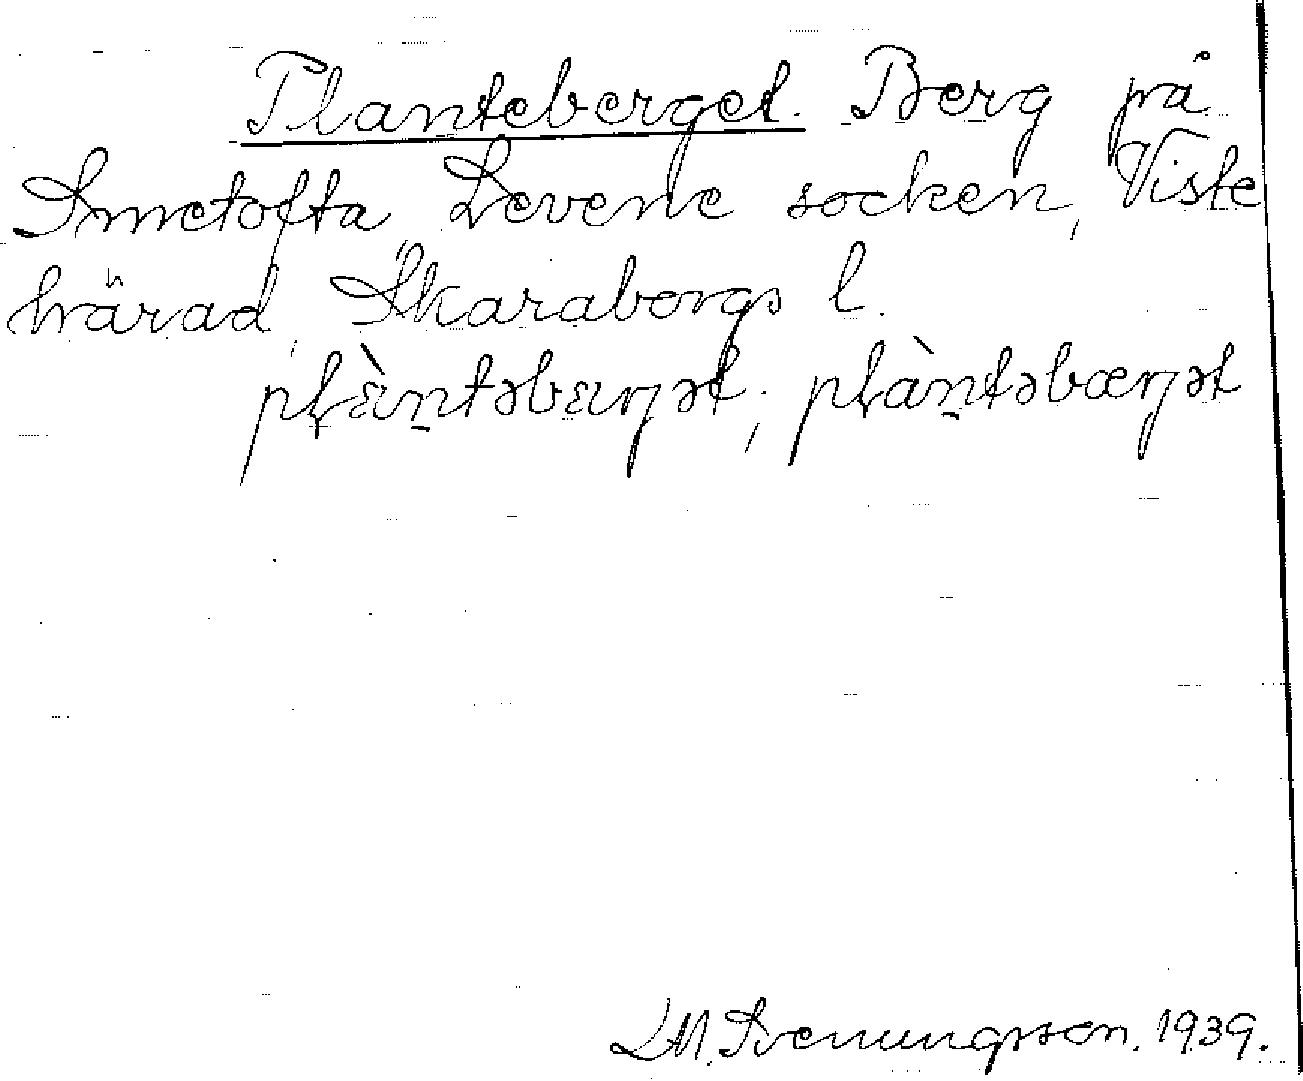 Planteberget. Berg på
Smetofta, Levene socken, Viste
härad, Skaraborgs l.
pɫàn̠təbærŋət; pɫàn̠təbæŋət
L.M. Svenungsson. 1939.